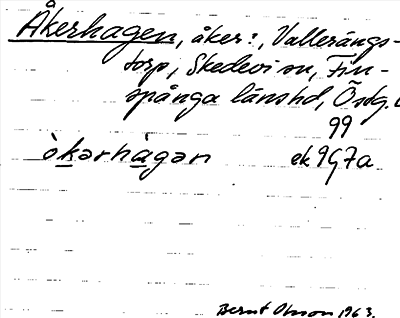 Åkerhagen, åker:, Vallerängs-
torp, Skedevi sn, Fin-
spånga länshd, Östg. L
99
òkərhàgən ek 9G7a
Bernt Olsson 1963.